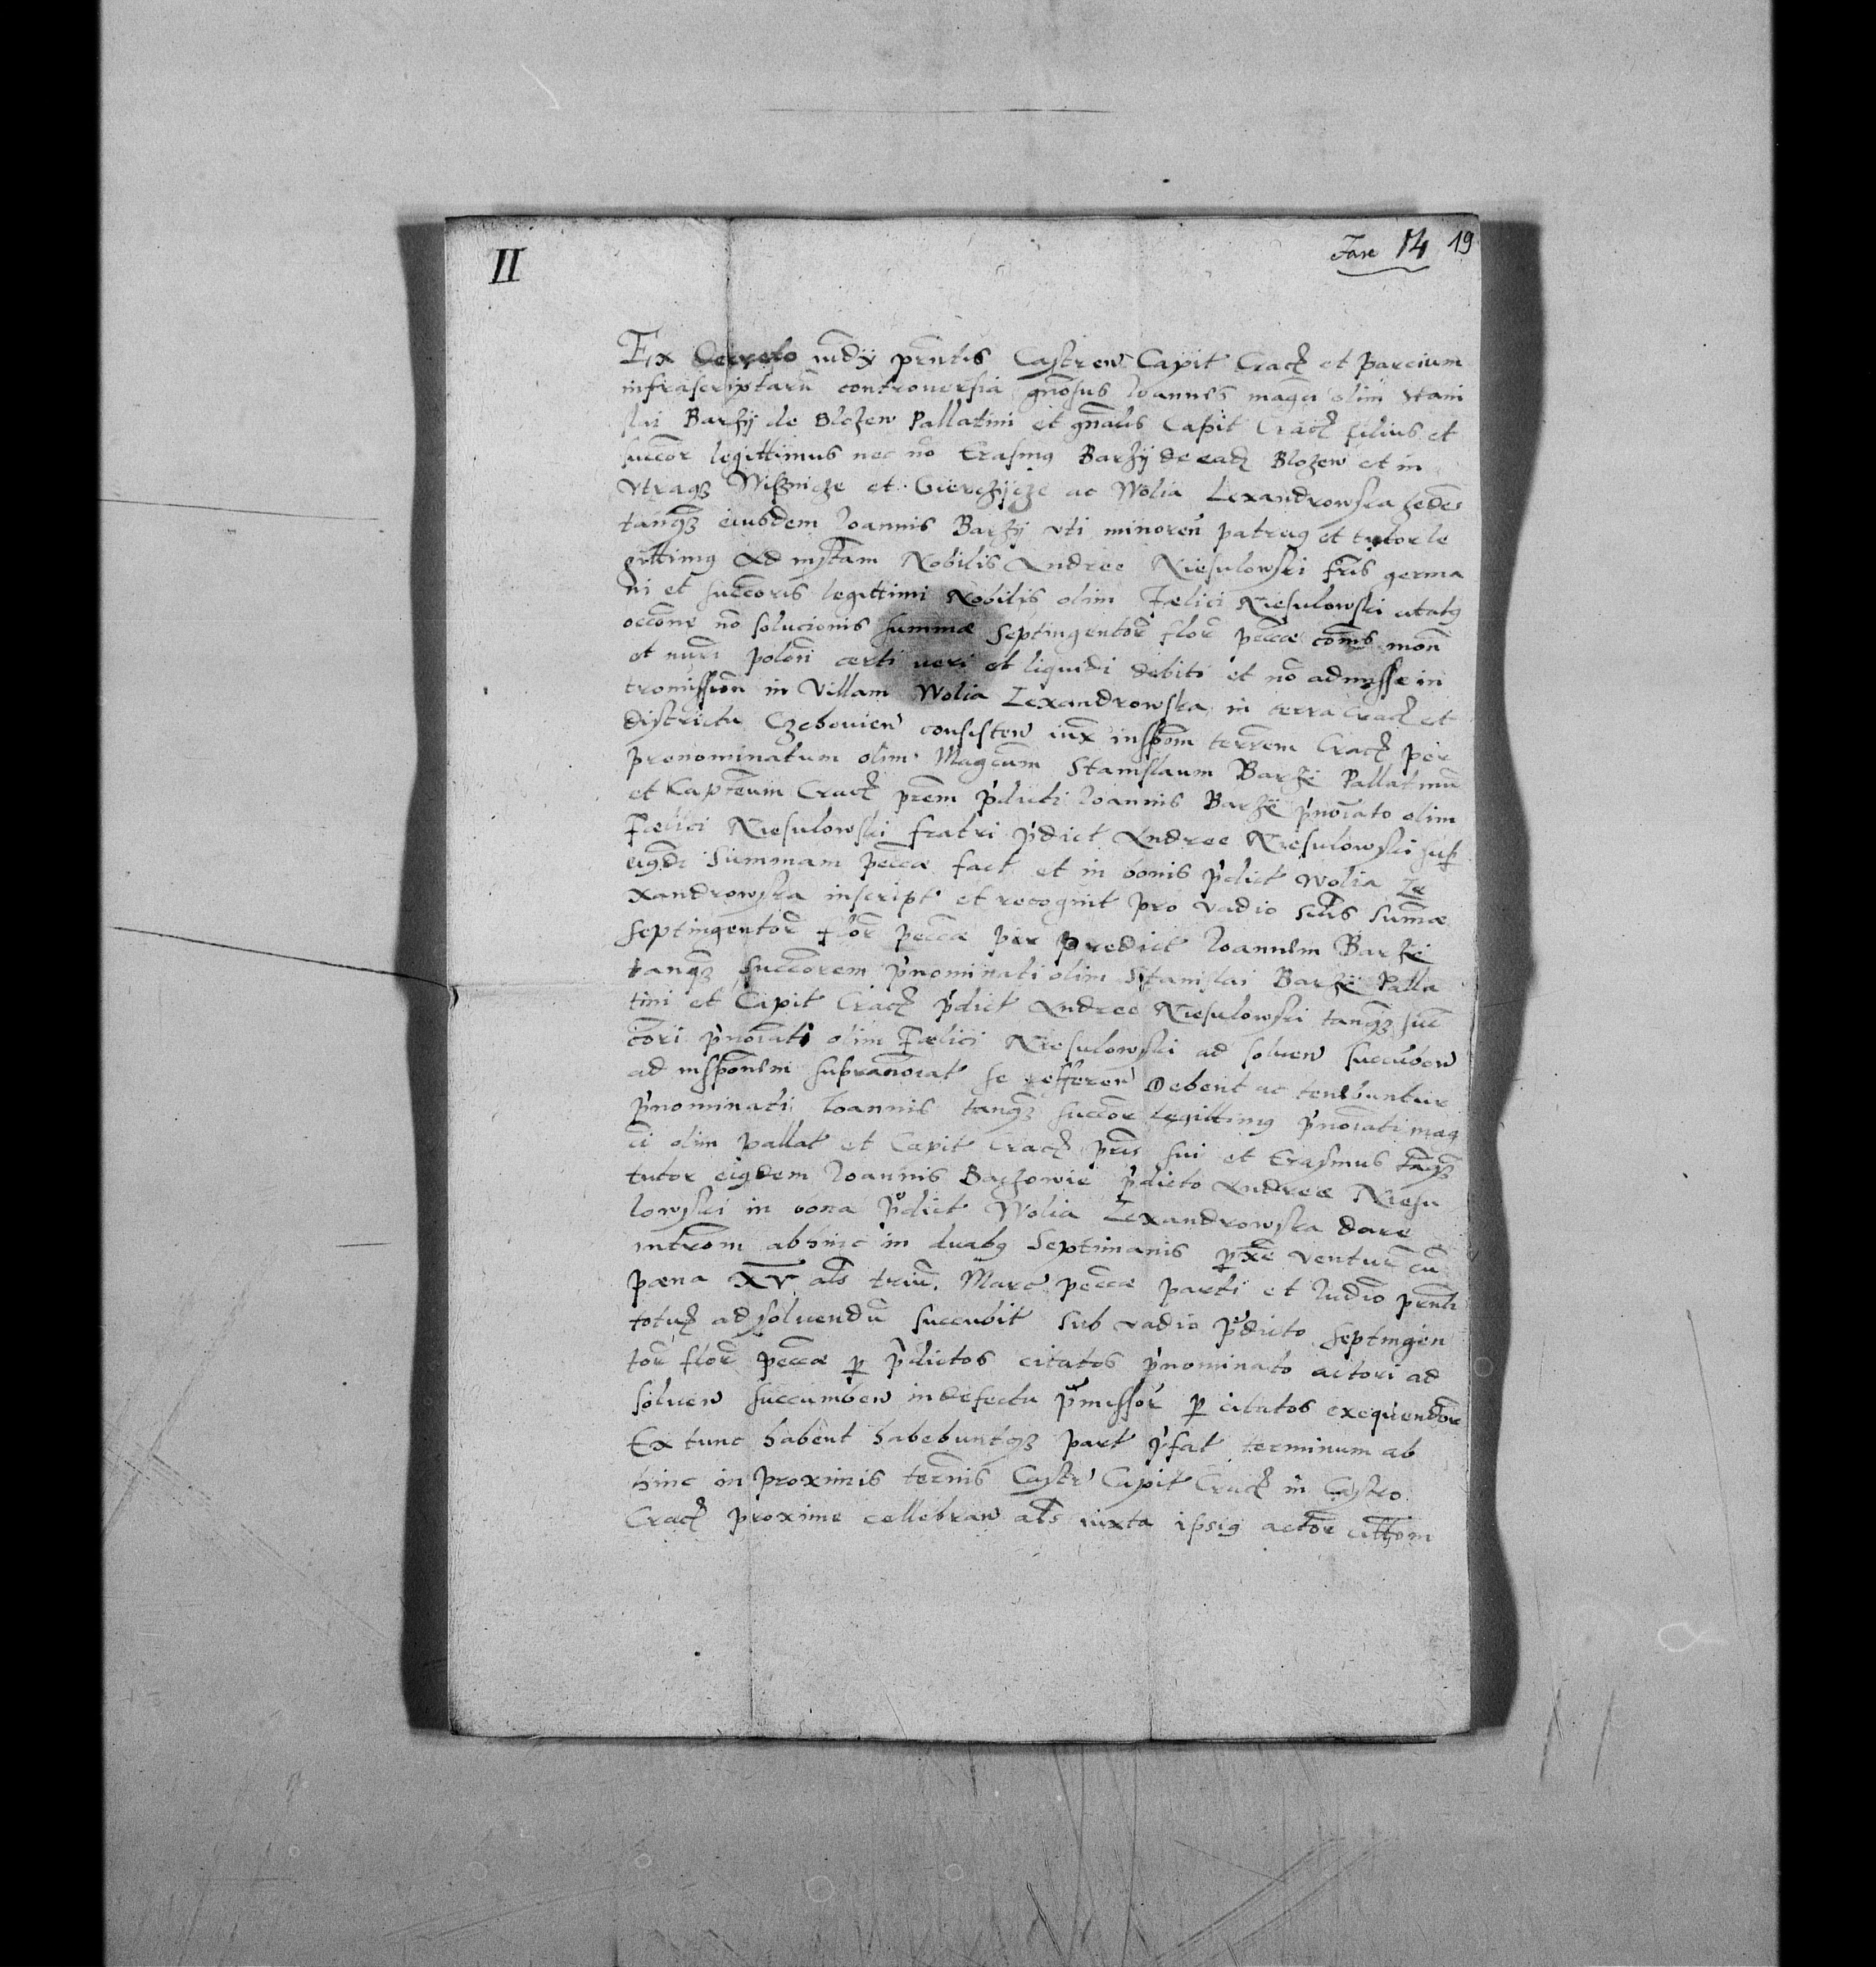 II
Fasc 14 19
Ex Decreto iudÿ pñtis Castren Capit Crac et Parcium
infrascriptarũ controversia gñosus Joannes magci olim Stani
slai Barzÿ de Blozew Pallatini et gñalis Capit Crac filius et
succor legittimus nec nõ Erasmus Barzÿ de ead Blozew et in
Utraqz Wisznicze et Gierczÿcze ac Wolia Lexandrowska hedes
tanqz eiusdem Joannis Barzÿ uti minoren patruus et tutor le
gittimus Ad instam Nobilis Andree Niesulowski fris germa
ni et succoris legittimi Nobilis olim Fælici Niesulowski citatus
occõne nõ solucionis summæ Septingentor flor peccæ comis mon
et nuri polon certi veri et liquidi debiti et nõ admisse in
tromission in Villam Wolia Lexandrowska in terra Crac et
districtu Czchovien consisten iux inspcom terrem Crac per
prenominatum olim Magcum Stanislaum Barzi Pallatinũ
et Capteum Crac prem pdicti Joannis Barzÿ pnoiato olim
Fælici Niesulowski fratri pdict Andree Niesulowski sup
eiusde Summam peccæ fact et in bonis pdict Wolia Le
xandrowska inscript et recognit pro vadio silis sumæ
septingentor flor peccæ per predict Joannem Barzÿ
tanqz succorem pnominati olim Stanislai Barzÿ Palla
tini et Capit Crac pdict Andree Niesulowski tanqz suc
cori pnoiati olim Fælici Niesulowski ad soluen succuben
ad inspconem supranoiat se refferen Debent ac tenebuntur
pnominati Joannis tanqz succor Legittimus pnoiati mag
ci olim pallat et Capit Crac pris sui et Erasmus tanqz
tutor eiusdem Joannis Barzowie pdicto Andreæ Niesu
lowski in bona pdict Wolia Lexandrowska dare
introm abhinc in duabus Septimanis pxe ventur cũ
pæna XV als triũ Marc peccæ parti et Judio pnti
totuz ad soluendũ succubit sub vadio pdicto Septingen
tor flor peccæ p pdictos citatos pnominato actori ad
soluen succumben in defectu pmissor p citatos exequendor
Ex tunc habent habebuntqz part pfat terminum ab
hinc in proximis termis Castr Capit Crac in Castro
Crac proxime cellebran als iuxta ipsius actor cittom